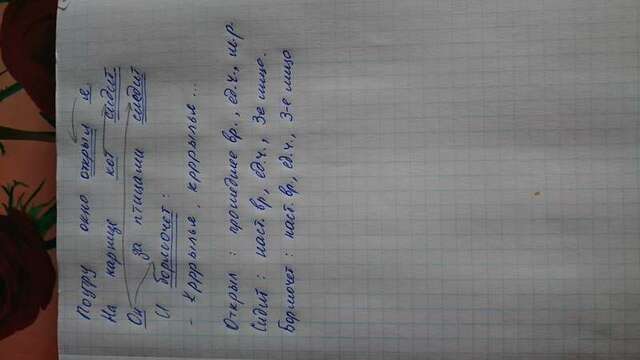 Поутру окно открыл я.
На карнизе кот сидит.
Он за птицами следит
И бормочет:
- Крррылья, крррылья...
Открыл: прошедшее вр., ед.ч., м.р.
Сидит: наст. вр, ед.ч., 3-е лицо.
Бормочет: наст. вр, ед.ч., 3-е лицо